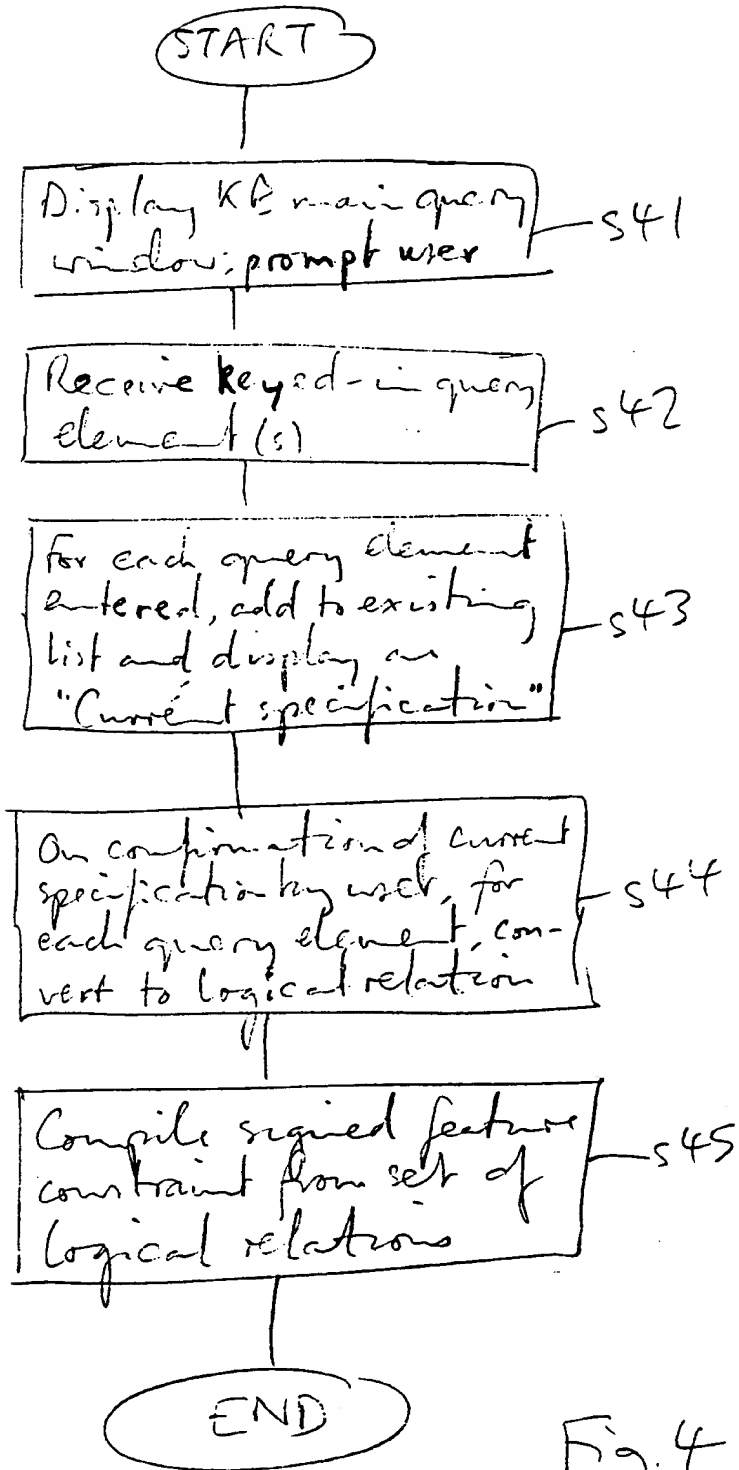 START
Display KB main query
window; prompt user
s41
Receive keyed-in query
element(s)
s42
For each query element
entered, add to existing
list and display as
"Current specification"
s43
On confirmation of current
specification by user, for
each query element, con-
vert to logical relation
s44
Compile signed feature
constraint from set of
logical relations
s45
END
Fig. 4